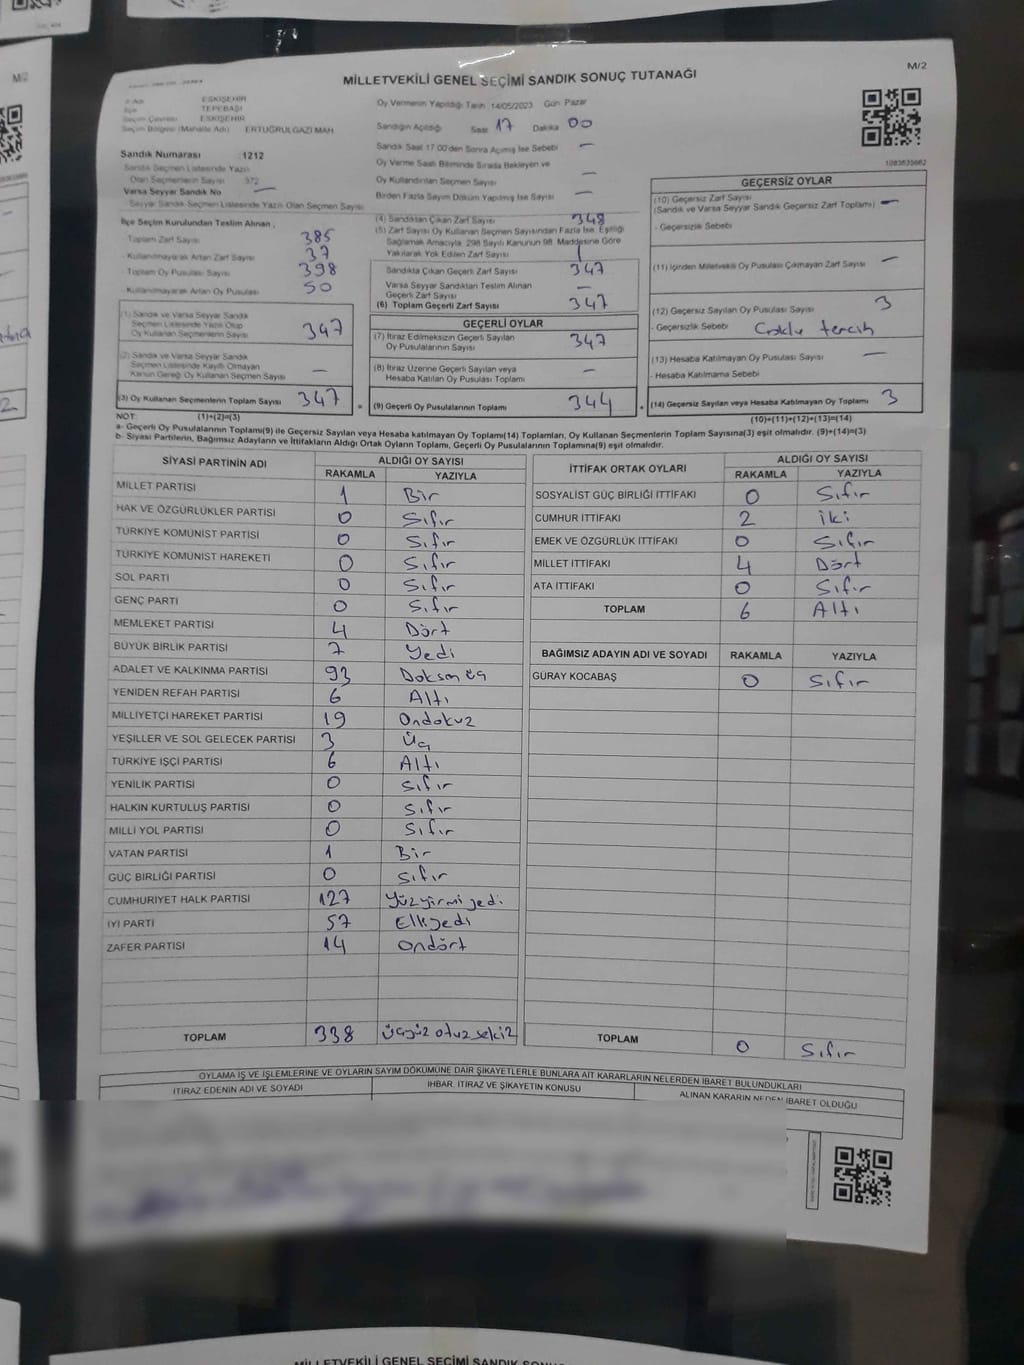 M/2
MİLLETVEKİLİ GENEL SEÇİMİ SANDIK SONUÇ TUTANAĞI
M/2
ESKİŞEHİR
TEPEBAŞI
ESKİŞEHİR
Seçim Bölgesi (Mahalle Adı) ERTUĞRULGAZİ MAH.
Sandık Numarası 1212
Sandık Seçmen Listesinde Yazılı
Olan Seçmenlerin Sayısı 372
Varsa Seyyar Sandık No —
Seyyar Sandık Seçmen Listesinde Yazılı Olan Seçmen Sayısı
Oy Vermenin Yapıldığı Tarih 14/05/2023 Gün Pazar
Sandığın Açıldığı Saat 17 Dakika 00
Sandık Saat 17.00'den Sonra Açılmış İse Sebebi —
Oy Verme Saati Bitiminde Sırada Bekleyen ve
Oy Kullandırılan Seçmen Sayısı —
Birden Fazla Sayım Döküm Yapılmış İse Sayısı —
1083635662
İlçe Seçim Kurulundan Teslim Alınan ;
- Toplam Zarf Sayısı 385
- Kullanılmayarak Artan Zarf Sayısı 37
- Toplam Oy Pusulası Sayısı 398
- Kullanılmayarak Artan Oy Pusulası 50
(1) Sandık ve Varsa Seyyar Sandık
Seçmen Listesinde Yazılı Olup
Oy Kullanan Seçmenlerin Sayısı 347
(2) Sandık ve Varsa Seyyar Sandık
Seçmen Listesinde Kayıtlı Olmayan
Kanun Gereği Oy Kullanan Seçmen Sayısı —
(3) Oy Kullanan Seçmenlerin Toplam Sayısı 347
(4) Sandıktan Çıkan Zarf Sayısı 348
(5) Zarf Sayısı Oy Kullanan Seçmen Sayısından Fazla İse, Eşitliği
Sağlamak Amacıyla, 298 Sayılı Kanunun 98. Maddesine Göre
Yakılarak Yok Edilen Zarf Sayısı 1
Sandıkta Çıkan Geçerli Zarf Sayısı 347
Varsa Seyyar Sandıktan Teslim Alınan
Geçerli Zarf Sayısı —
(6) Toplam Geçerli Zarf Sayısı 347
GEÇERLİ OYLAR
(7) İtiraz Edilmeksizin Geçerli Sayılan
Oy Pusulalarının Sayısı 347
(8) İtiraz Üzerine Geçerli Sayılan veya
Hesaba Katılan Oy Pusulası Toplamı —
= (9) Geçerli Oy Pusulalarının Toplamı 344
GEÇERSİZ OYLAR
(10) Geçersiz Zarf Sayısı
(Sandık ve Varsa Seyyar Sandık Geçersiz Zarf Toplamı) —
- Geçersizlik Sebebi
(11) İçinden Milletvekili Oy Pusulası Çıkmayan Zarf Sayısı —
(12) Geçersiz Sayılan Oy Pusulası Sayısı 3
- Geçersizlik Sebebi Çoklu tercih
(13) Hesaba Katılmayan Oy Pusulası Sayısı —
- Hesaba Katılmama Sebebi
+ (14) Geçersiz Sayılan veya Hesaba Katılmayan Oy Toplamı 3
NOT: (1)+(2)=(3) (10)+(11)+(12)+(13)=(14)
a- Geçerli Oy Pusulalarının Toplamı(9) ile Geçersiz Sayılan veya Hesaba katılmayan Oy Toplamı(14) Toplamları, Oy Kullanan Seçmenlerin Toplam Sayısına(3) eşit olmalıdır. (9)+(14)=(3)
b- Siyasi Partilerin, Bağımsız Adayların ve İttifakların Aldığı Ortak Oyların Toplamı, Geçerli Oy Pusulalarının Toplamına(9) eşit olmalıdır.
SİYASİ PARTİNİN ADI ALDIĞI OY SAYISI
RAKAMLA YAZIYLA
MİLLET PARTİSİ 1 Bir
HAK VE ÖZGÜRLÜKLER PARTİSİ 0 Sıfır
TÜRKİYE KOMÜNİST PARTİSİ 0 Sıfır
TÜRKİYE KOMÜNİST HAREKETİ 0 Sıfır
SOL PARTİ 0 Sıfır
GENÇ PARTİ 0 Sıfır
MEMLEKET PARTİSİ 4 Dört
BÜYÜK BİRLİK PARTİSİ 7 Yedi
ADALET VE KALKINMA PARTİSİ 93 Doksan üç
YENİDEN REFAH PARTİSİ 6 Altı
MİLLİYETÇİ HAREKET PARTİSİ 19 Ondokuz
YEŞİLLER VE SOL GELECEK PARTİSİ 3 Üç
TÜRKİYE İŞÇİ PARTİSİ 6 Altı
YENİLİK PARTİSİ 0 Sıfır
HALKIN KURTULUŞ PARTİSİ 0 Sıfır
MİLLİ YOL PARTİSİ 0 Sıfır
VATAN PARTİSİ 1 Bir
GÜÇ BİRLİĞİ PARTİSİ 0 Sıfır
CUMHURİYET HALK PARTİSİ 127 Yüzyirmi yedi
İYİ PARTİ 57 Elliyedi
ZAFER PARTİSİ 14 Ondört
TOPLAM 338 üçyüz otuz sekiz
İTTİFAK ORTAK OYLARI ALDIĞI OY SAYISI
RAKAMLA YAZIYLA
SOSYALİST GÜÇ BİRLİĞİ İTTİFAKI 0 Sıfır
CUMHUR İTTİFAKI 2 İki
EMEK VE ÖZGÜRLÜK İTTİFAKI 0 Sıfır
MİLLET İTTİFAKI 4 Dört
ATA İTTİFAKI 0 Sıfır
TOPLAM 6 Altı
BAĞIMSIZ ADAYIN ADI VE SOYADI RAKAMLA YAZIYLA
GÜRAY KOCABAŞ 0 Sıfır
TOPLAM 0 Sıfır
OYLAMA İŞ VE İŞLEMLERİNE VE OYLARIN SAYIM DÖKÜMÜNE DAİR ŞİKAYETLERLE BUNLARA AİT KARARLARIN NELERDEN İBARET BULUNDUKLARI
İTİRAZ EDENİN ADI VE SOYADI İHBAR, İTİRAZ VE ŞİKAYETİN KONUSU ALINAN KARARIN NEDEN İBARET OLDUĞU
MİLLETVEKİLİ GENEL SEÇİMİ SANDIK